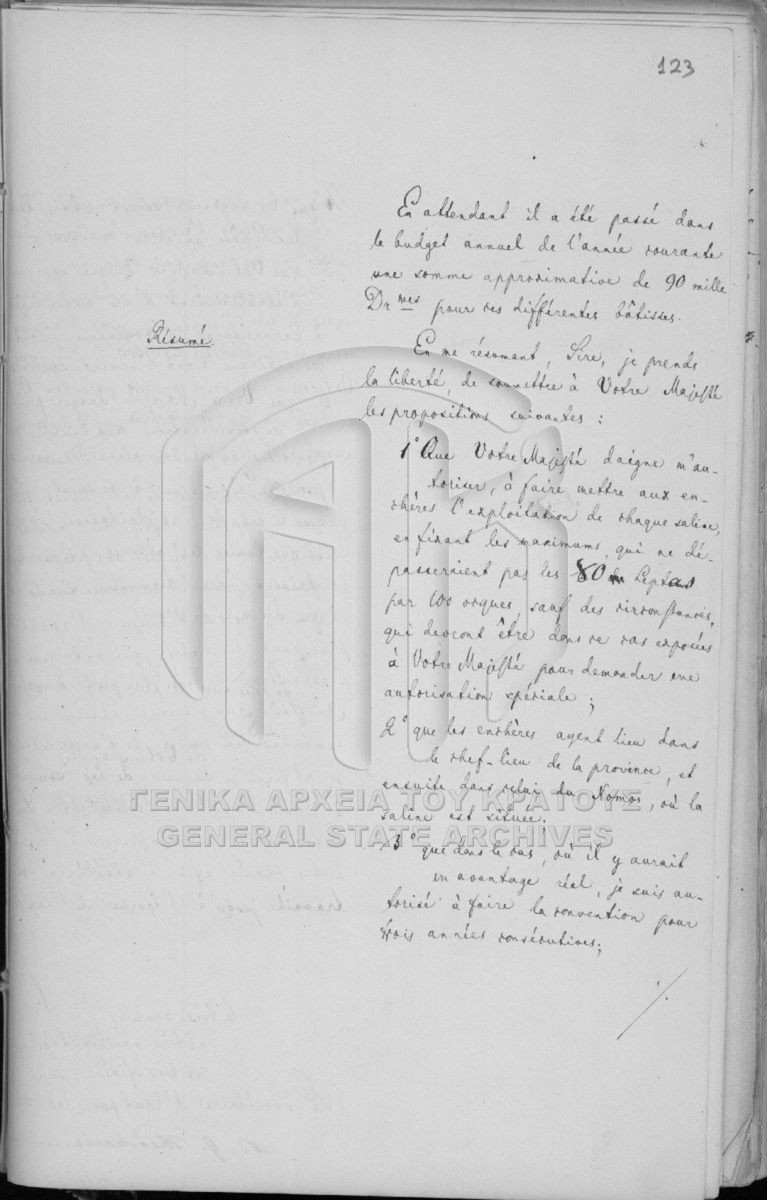 123
En attendant il a été passé dans
le budget annuel de l'année courante
une somme approximative de 90 mille
Drmes pour ces différentes bâtisses.
Résumé.
En me résumant, Sire, je prends
la liberté, de soumettre à Votre Majesté
les propositions suivantes :
1° Que Votre Majesté daigne m'au-
toriser, à faire mettre aux en-
chères l'exploitation de chaque saline,
en fixant les maximums, qui ne dé-
passeraient pas les 80 Leptas
par 100 ocques, sauf des circonstances,
qui devront être dans ce cas exposées
à Votre Majesté pour demander une
autorisation spéciale ;
2° que les enchères ayent lieu dans
le chef-lieu de la province, et
ensuite dans celui du Nomos, où la
saline est située;
3° que dans le cas, où il y aurait
un avantage réel, je suis au-
torisé à faire la convention pour
trois années consécutives;
./.
ΓΕΝΙΚΑ ΑΡΧΕΙΑ ΤΟΥ ΚΡΑΤΟΥΣ
GENERAL STATE ARCHIVES